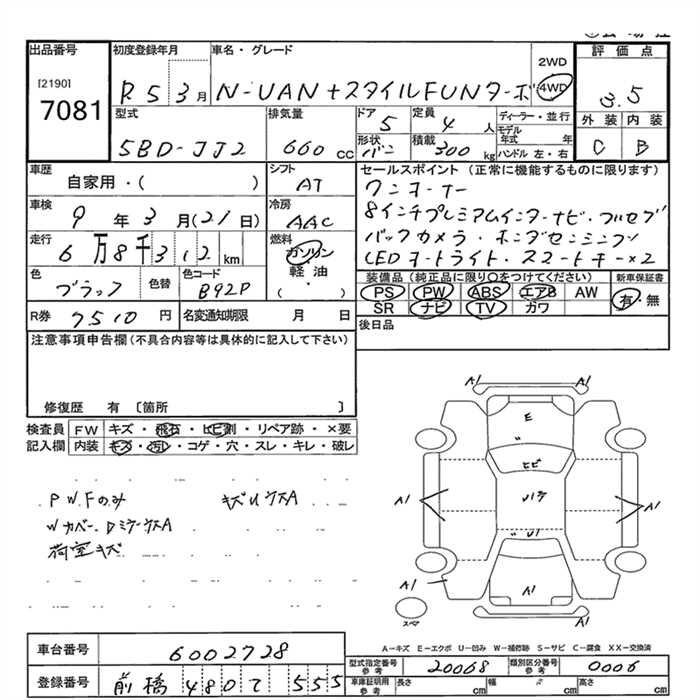 出品番号 初度登録年月 車名・グレード 2WD 評価点
[2190] 7081 R5 3月 N-VAN +スタイルFUNターボ 4WD 3.5
型式 排気量 ドア 5 定員 4人 ディーラー・並行 外装 内装
5BD-JJ2 660cc 形状 バン 積載 300kg モデル年式 年 ハンドル 左・右 C B
車歴 シフト セールスポイント(正常に機能するものに限ります)
自家用・( ) AT ワンオーナー
車検 冷房 8インチプレミアムインターナビ・フルセグ
9年3月(21日) AAC バックカメラ・ホンダセンシング
走行 燃料 LEDオートライト・スマートキー×2
6万8千312km ガソリン 軽油 ( ・ )
色 色替 色コード 装備品(純正品に限り○をつけてください) 新車保証書
ブラック B92P PS PW ABS エアB AW 有・無
SR ナビ TV カワ
R券 7510円 名変通知期限 月 日 後日品
注意事項申告欄(不具合内容等は具体的に記入して下さい)
修復歴 有 〔箇所 〕
検査員 FW キズ・飛石・ヒビ割・リペア跡・×要
記入欄 内装 キズ・汚レ・コゲ・穴・スレ・キレ・破レ
P W.Fのみ キズUケスA
Wカバー、DミラーケスA
荷室キズ
A1 A1
E
ヒビ
A1 A1
U1
A1 A1
A1 A1
スペア
A-キズ E-エクボ U-凹み W-補修跡 S-サビ C-腐食 XX-交換済
車台番号 6002728
型式指定番号 参考 20068 類別区分番号 参考 0006
登録番号 前橋 480 555
車庫証明用 参考 長さ cm 幅 cm 高さ cm